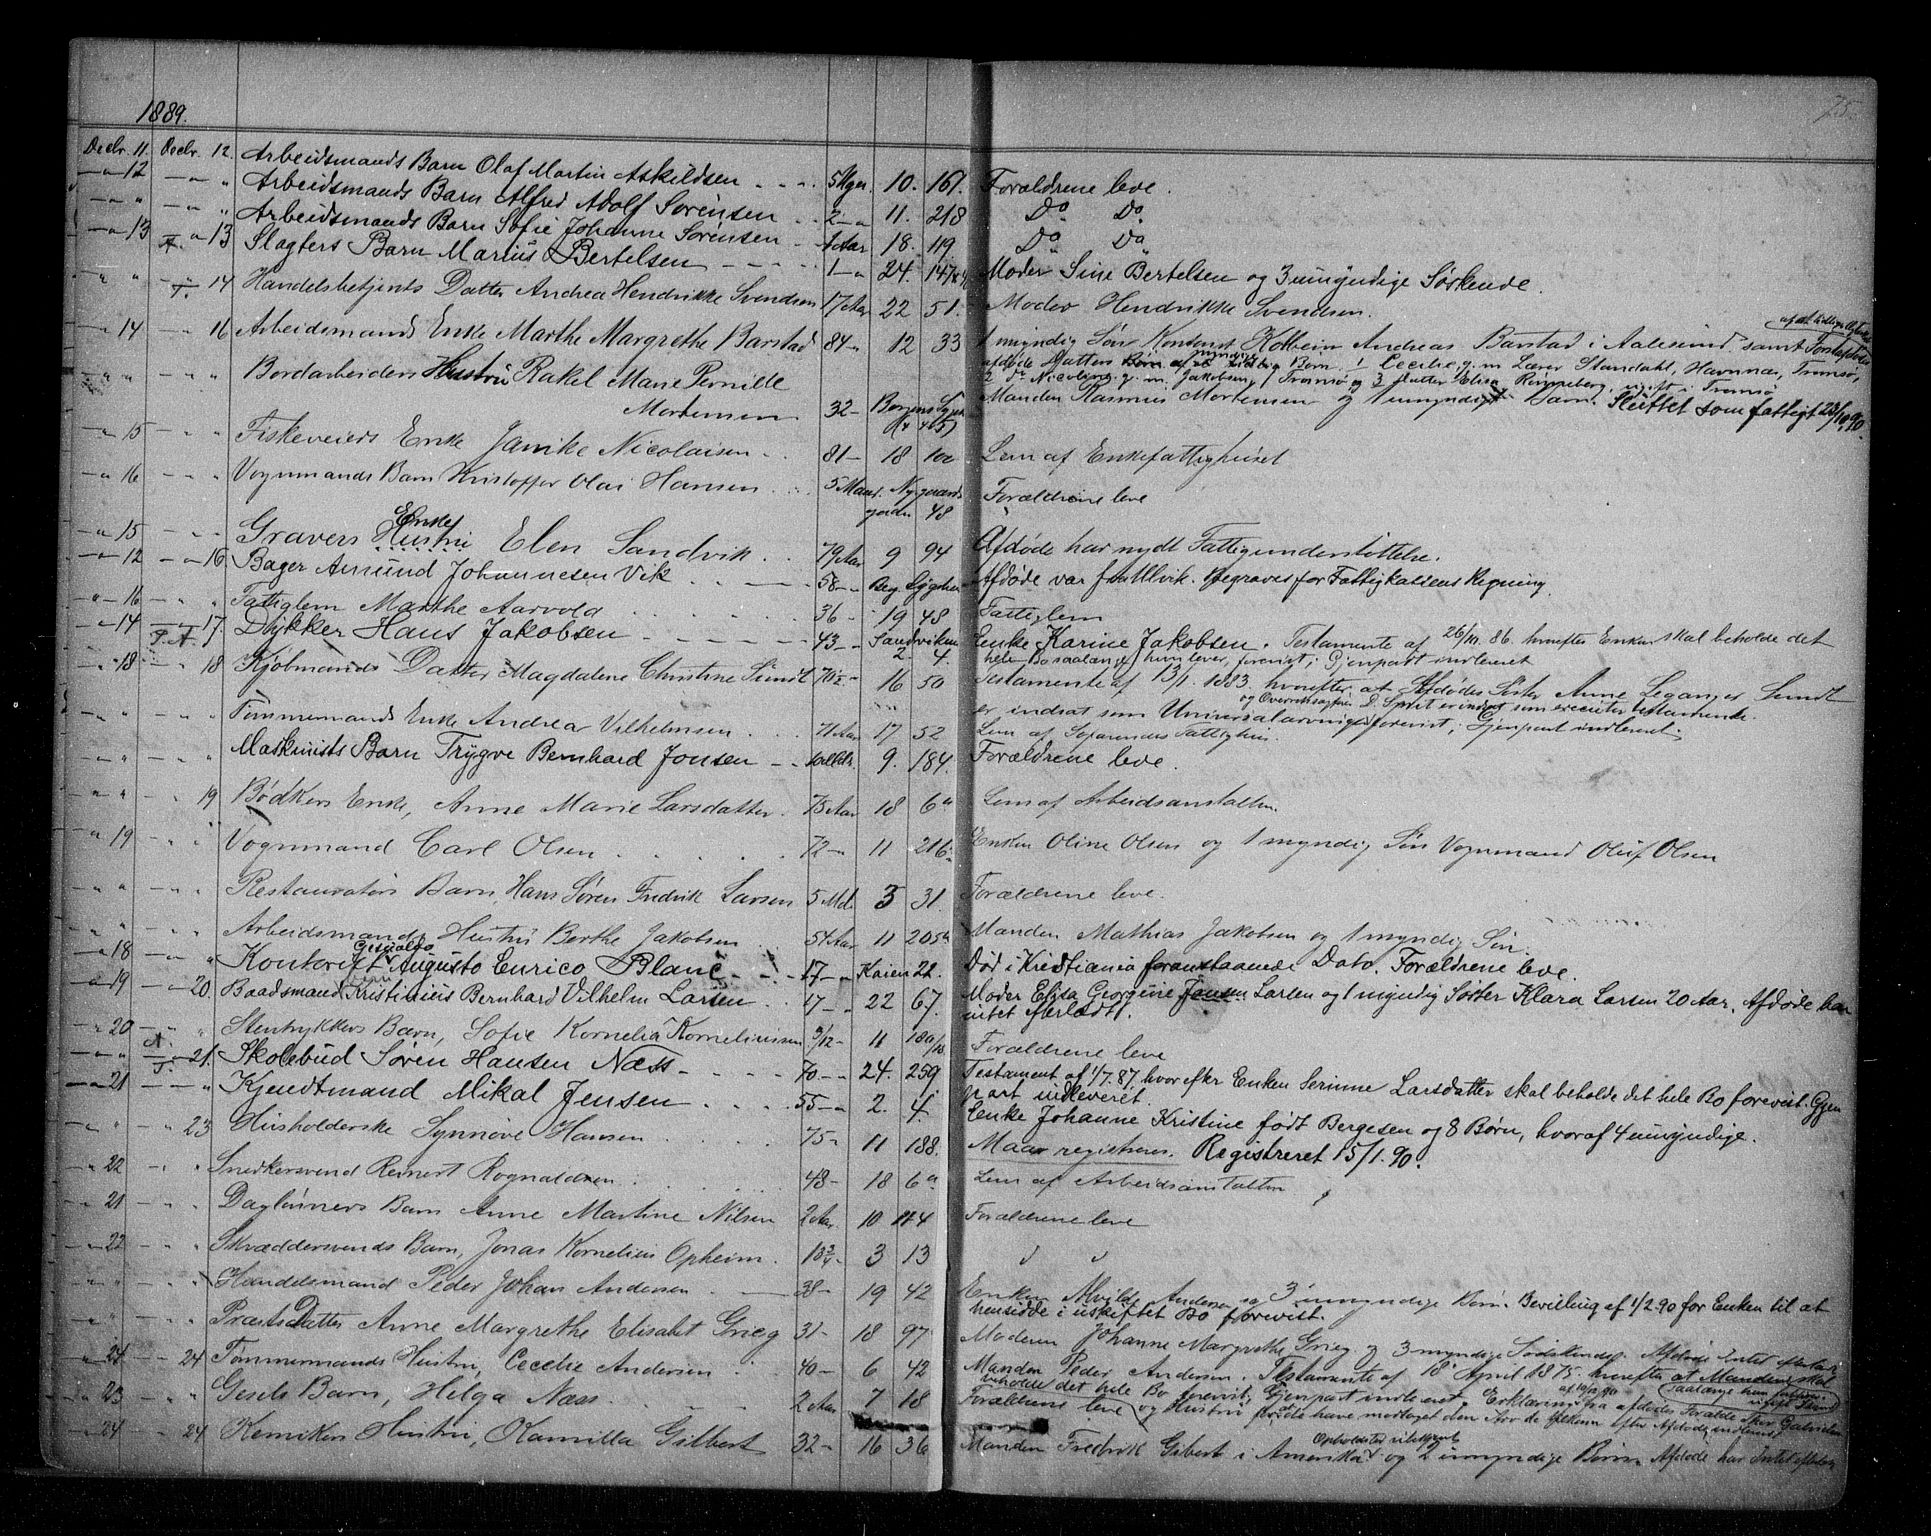 75.
1889.
Decbr. 11. Decbr. 12. Arbeidsmands Barn Olaf Martin Askildsen 5 Uger. 10. 161. Forældrene leve.
" 12 " " Arbeidsmands Barn Alfred Adolf Sørensen 2 " 11. 218 Do Do
" " " " Arbeidsmands Barn Sofie Johanne Sørensen 1 Aar 18. 119 Do Do
" 13 " 13 Slagters Barn Marius Bertelsen 1 " 24. Moder Sine Bertelsen og 3 umyndige Søskende.
" " " 14 Handelsbetjents Datter Andrea Hendrikke Svendsen 17 Aar 22 51. Moder Hendrikke Svendsen.
" 14 " 16 Arbeidsmands Enke Marthe Margrethe Barstad 84 " 12 33 1 myndig Søn Andreas Barstad i Aalesund samt
afdøde Datters myndige Børn: 1 Cecilie g. m. Lærer Standahl, Havnnæs, Tromsø,
2 do Nicoline g. m. Jakobsen, Tromsø og 3 Elisa Rinneberg, ugift i Tromsø
" " " " Bordarbeiders Hustru Rakel Marie Pernille
Mortensen 32 " Manden Rasmus Mortensen og 1 umyndigt Barn. Sluttet som fattigt 23/10 90.
" 15 " " Fiskeveiers Enke Janike Nicolaisen 81 " 18 100 Lem af Enkefattighuset
" 16 " " Vognmands Barn Kristoffer Olai Hansen 5 Maan. Nygaards Forældrene leve
gaden 48
" 15 " " Gravers Enke Hustru Elen Sandvik 79 Aar 9 94 Afdøde har nydt Fattigunderstøttelse.
" 12 " 16 Bager Amund Johannesen Vik 58 " Afdøde var fra Ulvik. Begraves for Fattigkassens Regning.
" 16 " " Fattiglem Marthe Aarvold 36 " 19 48 Fattiglem
" 14 " 17. Dykker Hans Jakobsen 43 " Sandviken 2. 4. Enke Karine Jakobsen. Testamente af 26/10. 86. hvorefter Enken skal beholde det
hele Bo saalænge hun lever, forevist; Gjenpart indleveret
" 18 " 18 Kjøbmands Datter Magdalene Christine Sundt 70½ " 16 50 Testamente af 13/1. 1883 hvorefter at Afdødes Søster Anne Leganger Sundt
er indsat som Universalarving forevist; Gjenpart indleveret.
" " " " Tømmermands Enke Andrea Vilhelmsen 71 Aar 17 52 Lem af Søfarendes Fattighus.
" " " " Maskinists Barn Trygve Bernhard Jonsen 9. 184. Forældrene leve.
" " " 19 Bødkers Enke, Anne Marie Larsdatter 75 Aar 18 6a Lem af Arbeidsanstalten.
" 19 " " Vognmand Carl Olsen 72 " 11 216. Enken Oline Olsen og 1 myndig Søn Vognmand Oluf Olsen
" " " " Restauratørs Barn, Hans Søren Fredrik Larsen 5 Md. 3 31. Forældrene leve.
" " " " Arbeidsmands Hustru Berthe Jakobsen 54 Aar 11 205a Manden Mathias Jakobsen og 1 myndig Søn.
" 18 " " Kontorist Augusto Enrico Blanc 17 " Kaien 22. Død i Kristiania foranstaaende Dato. Forældrene leve.
" 19 " 20. Baadsmand Kristinius Bernhard Vilhelm Larsen 17 " 22 67. Moder Elisa Georgine Larsen og 1 myndig Søster Klara Larsen 20 Aar. Afdøde har
intet efterladt.
" 20 " " Stentrykkers Barn, Sofie Kornelia Korneliussen 3/12 " 11 Forældrene leve
" " " 21. Skolebud Søren Hansen Næss 70 " 24. 259 Testament af 1/7. 87, hvorefter Enken Serinne Larsdatter skal beholde det hele Bo forevist. Gjen
part indleveret.
" 21 " " Kjendtmand Mikal Jensen 55 " 2. 4. Enke Johanne Kristine født Bergesen og 8 Børn, hvoraf 4 umyndige.
" " " 23 Husholderske Synnøve Hansen 75 " 11 188. Maa registreres. Registreret 15/1. 90.
" 22 " " Snedkersvend Reinert Rognaldsen 48 " 18 6a Lem af Arbeidsanstalten
" 21 " " Dagleiners Barn Anne Martine Nilsen 2 Aar. 10 114 Forældrene leve
" 22 " " Skræddersvends Barn, Jonas Kornelius Opheim 1¾ " 3 13 " "
" " " " Handelsmand Peder Johan Andersen 38 " 19 42 Enken Andersen og 3 umyndige Børn. Bevilling af 1/2 90 for Enken til at
hensidde i uskiftet Bo forevist.
" " " " Præsts Datter Anne Margrethe Elisabet Grieg 31 " 18 97 Moderen Johanne Margrethe Grieg og 3 myndige Sødskende.
" 24 " 24 Tømmermands Hustru, Cecilie Andersen 40 " 6 42 Manden Peder Andersen. Testamente af 18 April 1875 hvorefter at Manden skal
beholde det hele Bo forevist; Gjenpart indleveret.
" 23 " " Gesels Barn, Helga Næss 2 Aar 7 18 Forældrene leve
" 24 " 24 Kemikers Hustru, Kamilla Gilbert 32 " 16 36 Manden Fredrik Gilbert i Amerika og 2 umyndige Børn. Afdøde har Intet efterladt